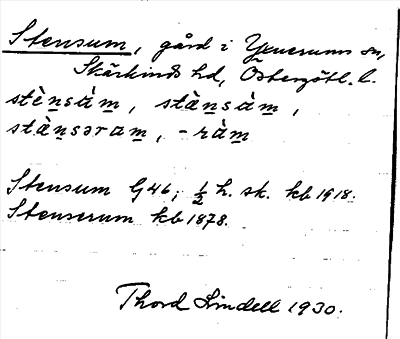 Stensum, gård i Yxnerums sn,
Skärkinds hd, Östergötl. l.
stènsàm, stànsàm,
stànsəram, -ràm
Stensum G46; ½ h. sk. kb 1918.
Stenserum kb 1878.
Thord Lindell 1930.